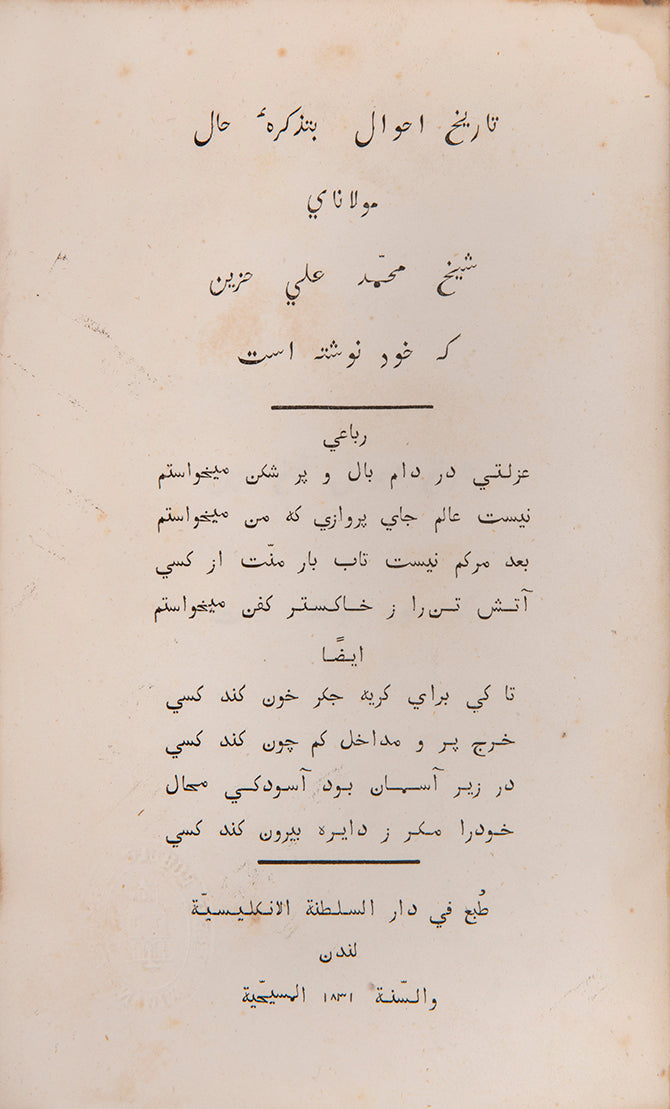 تاريخ احوال بتذكرهٔ حال
مولاناي
شيخ محمّد علي حزين
كه خود نوشته است
رباعي
عزلتي در دام بال و پر شكن ميخواستم
نيست عالم جاي پروازي كه من ميخواستم
بعد مركم نيست تاب بار منّت از كسي
آتش تن را ز خاكستر كفن ميخواستم
ايضًا
تا كي براي كريه جكر خون كند كسي
خرج پر و مداخل كم چون كند كسي
در زير آسمان بود آسودكي محال
خودرا مكر ز دايره بيرون كند كسي
طُبع في دار السلطنة الانكليسيّة
لندن
والسّنة ۱۸۳۱ المسيحّية